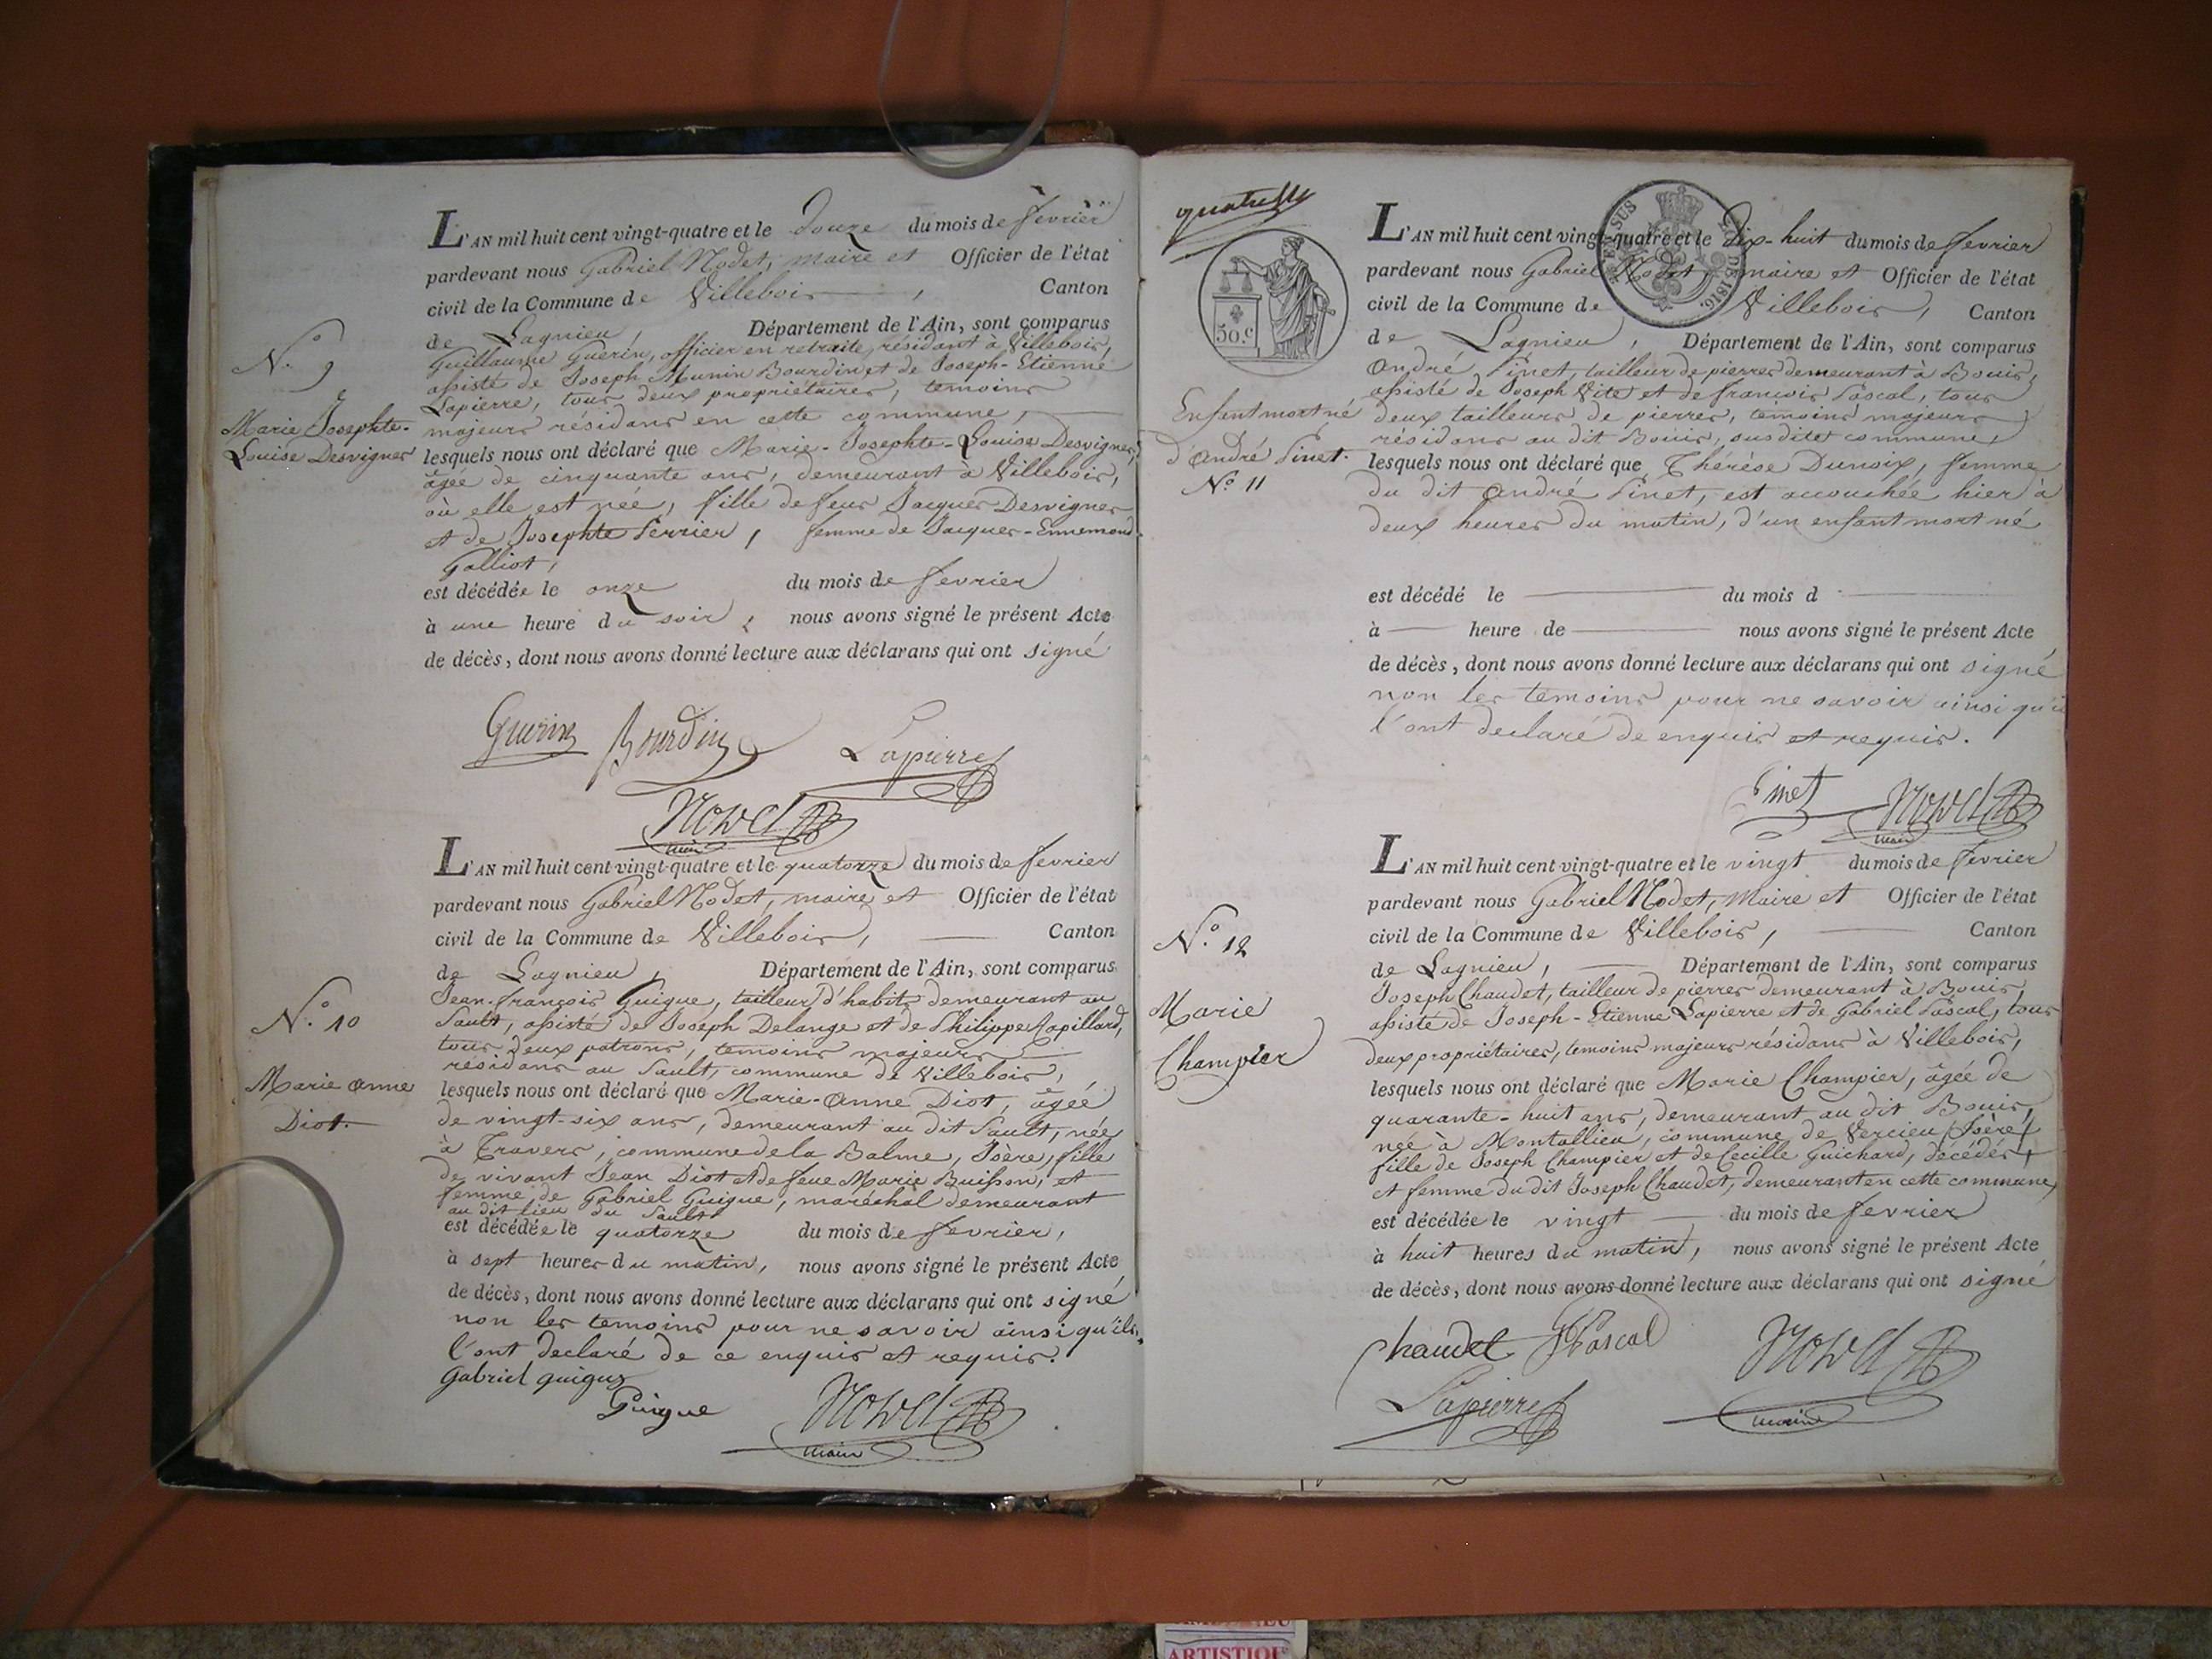 L'AN mil huit cent vingt-quatre et le douze du mois de fevrier
pardevant nous Gabriel Nodet, maire et Officier de l'état
civil de la Commune de Villebois, Canton
de Lagnieu, Département de l'Ain, sont comparus
Guillaume Guerin, officier en retraite, résidant à Villebois,
assisté de Joseph Munin Bourdin et de Joseph-Etienne
Lapierre, tous deux propriétaires, temoins
majeurs résidans en cette commune,
lesquels nous ont déclaré que Marie-Josephte-Louise Desvignes,
âgée de cinquante ans, demeurant à Villebois,
où elle est née, fille de feus Jacques Desvignes
et de Josephte Perrier, femme de Jacques-Ennemond
Galliot,
est décédée le onze du mois de fevrier
à une heure du soir, nous avons signé le présent Acte
de décès, dont nous avons donné lecture aux déclarans qui ont signé
N.° 9
Marie Josephte-
Louise Desvignes
Guerin Bourdin Lapierre
Nodet
maire
L'AN mil huit cent vingt-quatre et le quatorze du mois de fevrier
pardevant nous Gabriel Nodet, maire et Officier de l'état
civil de la Commune de Villebois, Canton
de Lagnieu, Département de l'Ain, sont comparus
Jean-françois Guigue, tailleur d'habits demeurant au
Sault, assisté de Joseph Delange et de Philippe Rapillard,
tous deux patrons, temoins majeurs
résidans au Sault, commune de Villebois,
lesquels nous ont déclaré que Marie-Anne Diot, âgée
de vingt-six ans, demeurant au dit Sault, née
à Travers, commune de la Balme, Isère, fille
de vivant Jean Diot et de feue Marie Buisson, et
femme de Gabriel Guigue, maréchal demeurant
au dit lieu du Sault
est décédée le quatorze du mois de fevrier,
à sept heures du matin, nous avons signé le présent Acte
de décès, dont nous avons donné lecture aux déclarans qui ont signé
non les temoins pour ne savoir ainsi qu'ils
l'ont declaré de ce enquis et requis.
N.° 10
Marie Anne
Diot.
Gabriel guigue
Guigue Nodet
maire
quatre
50.c
DE 1816.
L'AN mil huit cent vingt-quatre et le Dix-huit du mois de fevrier
pardevant nous Gabriel Nodet maire et Officier de l'état
civil de la Commune de Villebois, Canton
de Lagnieu, Département de l'Ain, sont comparus
André Pinet, tailleur de pierres demeurant à Bouis,
assisté de Joseph Vite et de francois Pascal, tous
deux tailleurs de pierres, temoins majeurs
résidans au dit Bouis, susdite commune,
lesquels nous ont déclaré que Thérèse Dunoix, femme
du dit André Pinet, est accouchée hier à
deux heures du matin, d'un enfant mort né
est décédé le du mois d
à heure de nous avons signé le présent Acte
de décès, dont nous avons donné lecture aux déclarans qui ont signé
non les temoins pour ne savoir ainsi qu'il
l'ont declaré de enquis et requis.
Enfant mort né
d'André Pinet.
N.° 11
Pinet Nodet
maire
L'AN mil huit cent vingt-quatre et le vingt du mois de fevrier
pardevant nous Gabriel Nodet, Maire et Officier de l'état
civil de la Commune de Villebois, Canton
de Lagnieu, Département de l'Ain, sont comparus
Joseph Chaudet, tailleur de pierres demeurant à Bouis,
assisté de Joseph-Etienne Lapierre et de Gabriel Pascal, tous
deux propriétaires, temoins majeurs résidans à Villebois,
lesquels nous ont déclaré que Marie Champier, âgée de
quarante-huit ans, demeurant au dit Bouis,
née à Montallieu, commune de Vercieu (Isère)
fille de Joseph Champier et de Cecille Guichard, décédés,
et femme du dit Joseph Chaudet, demeurant en cette commune,
est décédée le vingt du mois de fevrier
à huit heures du matin, nous avons signé le présent Acte
de décès, dont nous avons donné lecture aux déclarans qui ont signé
N.° 12
Marie
Champier
Chaudet GPascal Nodet
Lapierre maire
ARTISTIQU